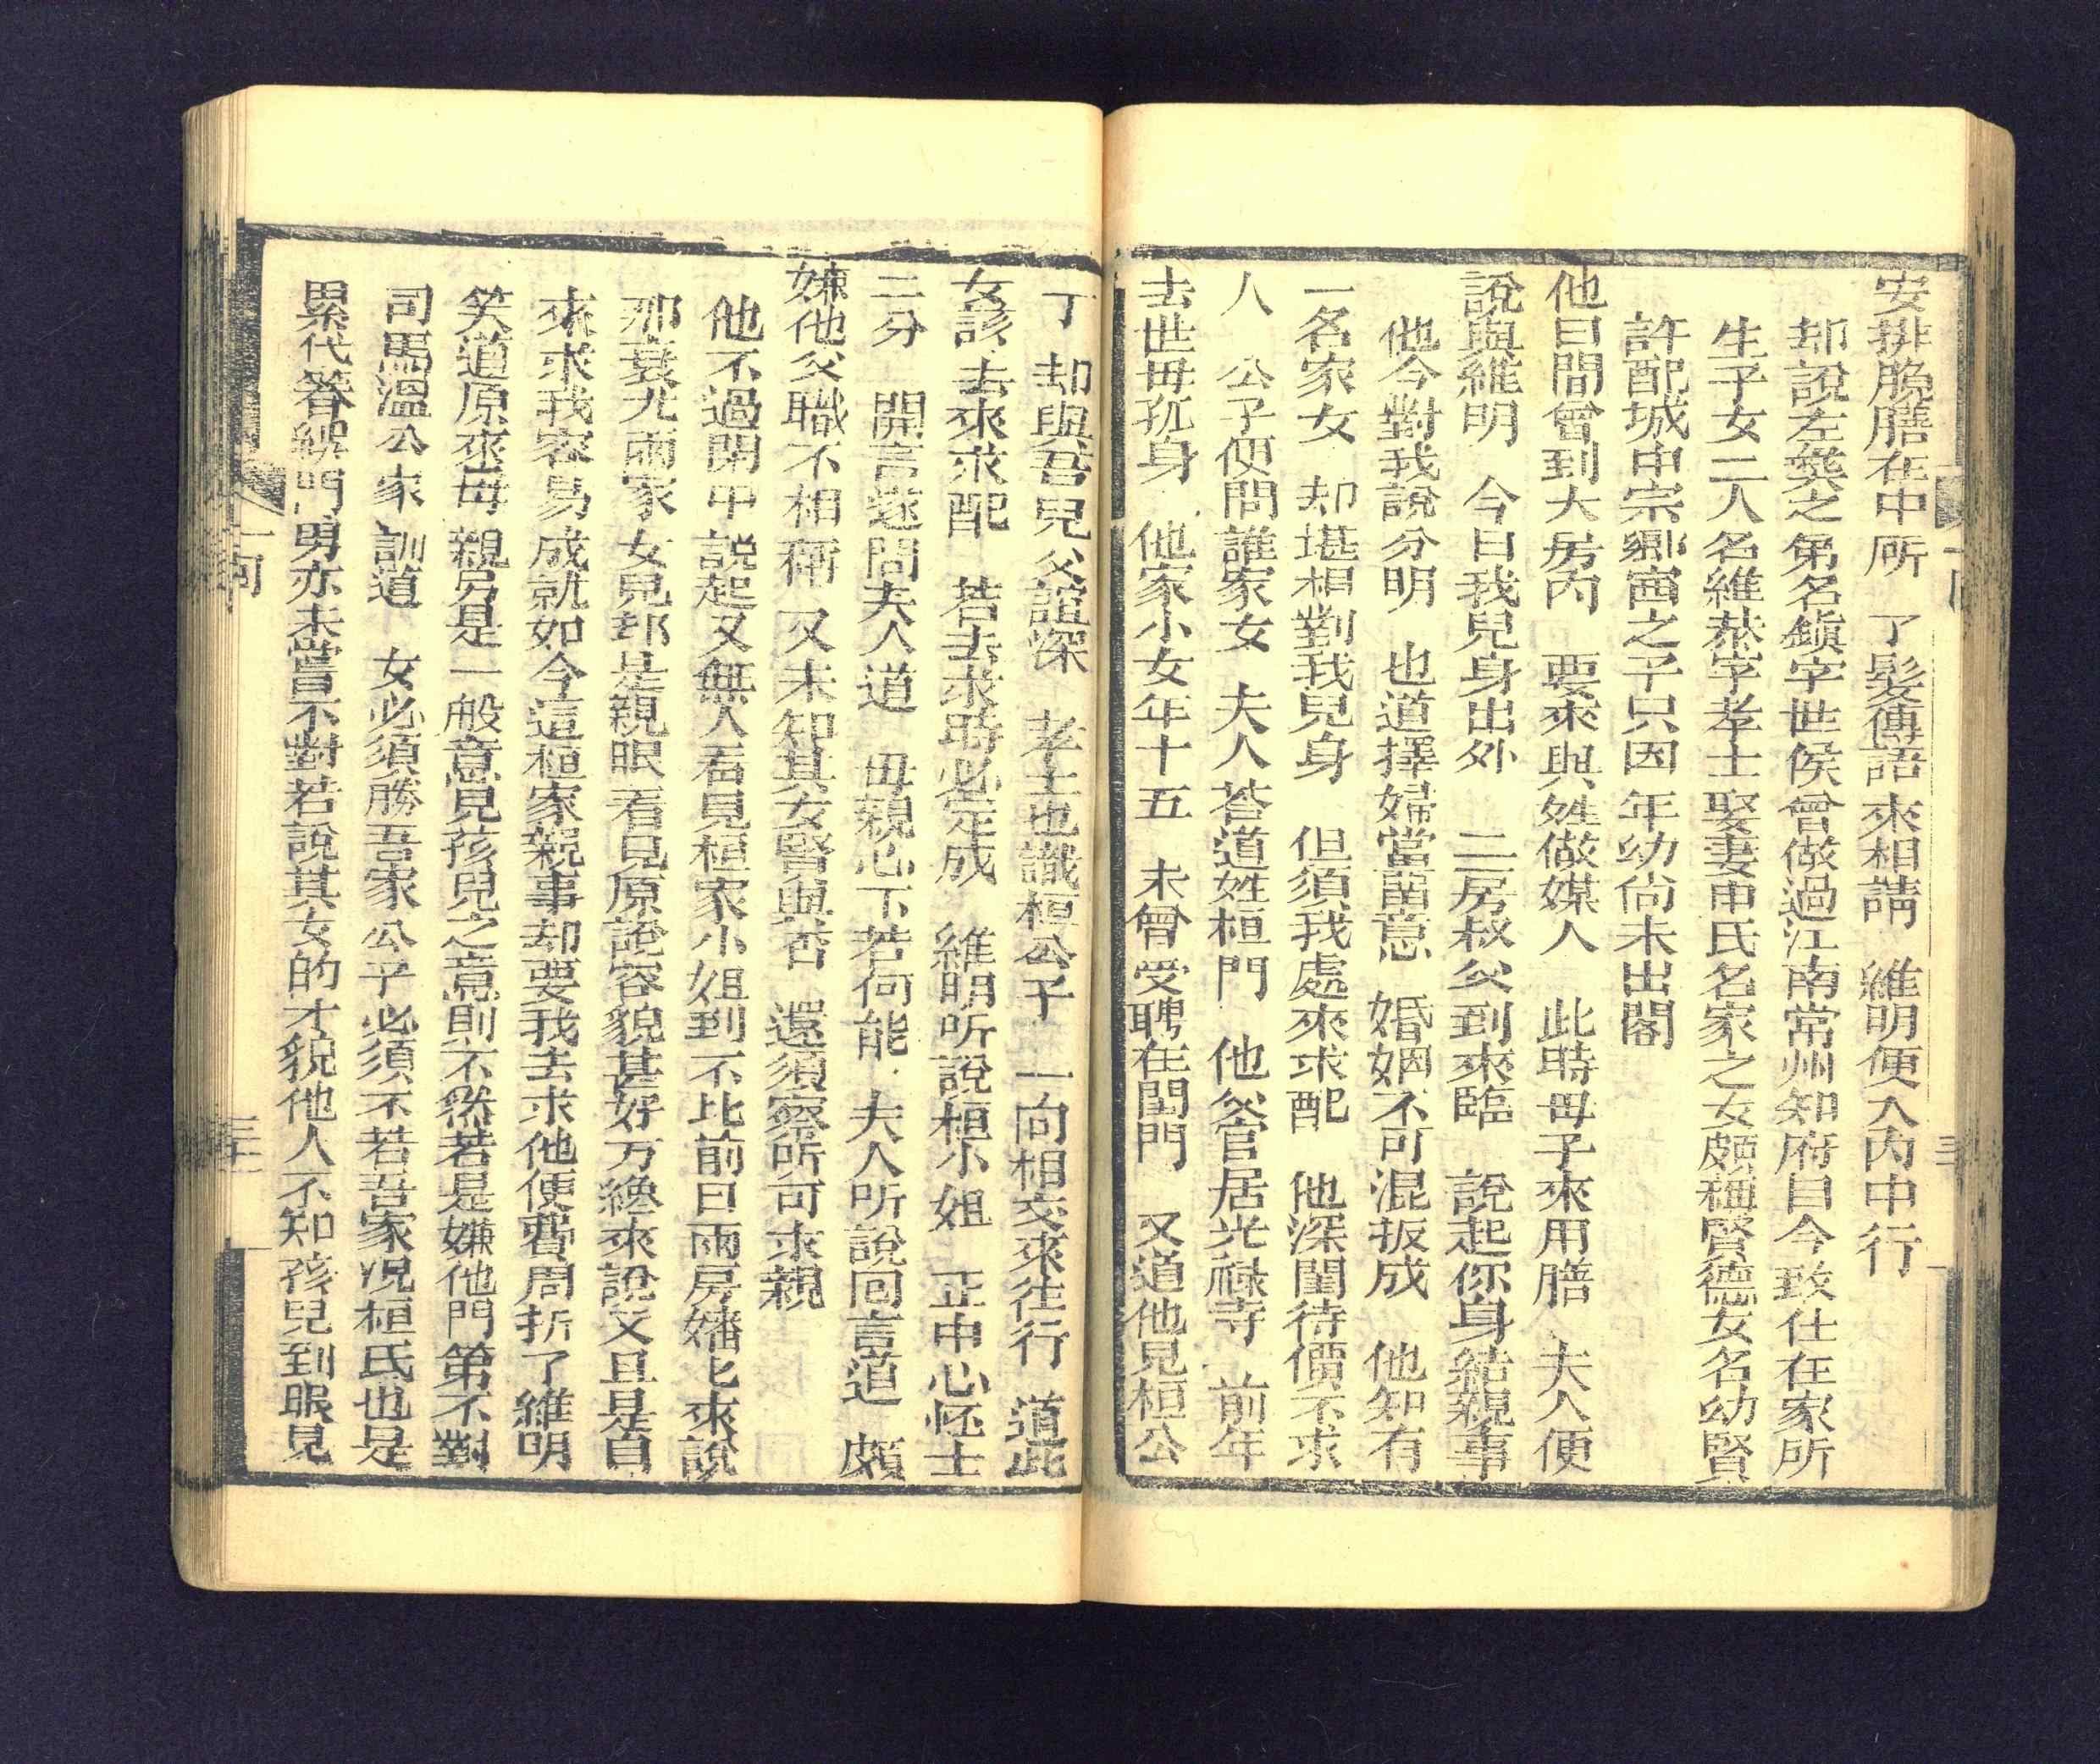 安排晚膳在中所　了鬟傳語來相請　維明便入內中行
却說左巽之第名鎮字世侯曾做過江南常州知府目今致仕在家所
生子女二人名維恭字孝士娶妻申氏名家之女頗稱賢德女名幼賢
許配城中宗鄉宦之子只因年幼尙未出閣
他曰間曾到大房內　要來與姓做媒人　此時毋子來用膳　夫人便
說與維明　今日我兒身出外　二房叔父到來臨　說起你身結親事
他今對我說分明　也道擇婦當畱意　婚姻不可混扳成　他知有
一名家女　却堪相對我兒身　但須我處來求配　他深閨待價不求
人　公子便問誰家女　夫人荅道姓桓門　他父官居光祿寺　前年
去世毋孤身　他家小女年十五　未曾受聘在閨門　又道他兄桓公
丁　却與吾兒父誼深　孝士也識桓公子　一向相交來往行　道此
女該去來求配　若去求時必定成　維明听說桓小姐　正中心怀士
二分　開言遂問夫人道　毋親心下若何能　夫人听說回言道　頗
嫌他父職不相稱　又未知其女賢與否　還須察听可求親
他不過閑中說起又無人看見桓家小姐到不比前日兩房嬸匕來說
那袁尤兩家女兒却是親眼看見原說容貌甚好方纔來說又且是自
來求我容易成就如今這桓家親事却要我去求他便費周折了維明
笑道原來毋親另是一般意見孩兒之意則不然若是嫌他門第不對
司馬溫公家訓道　女必須勝吾家公子必須不若吾家况桓氏也是
累代簪纓門另亦未嘗不對若說其女的才貌他人不知孩兒到眼見